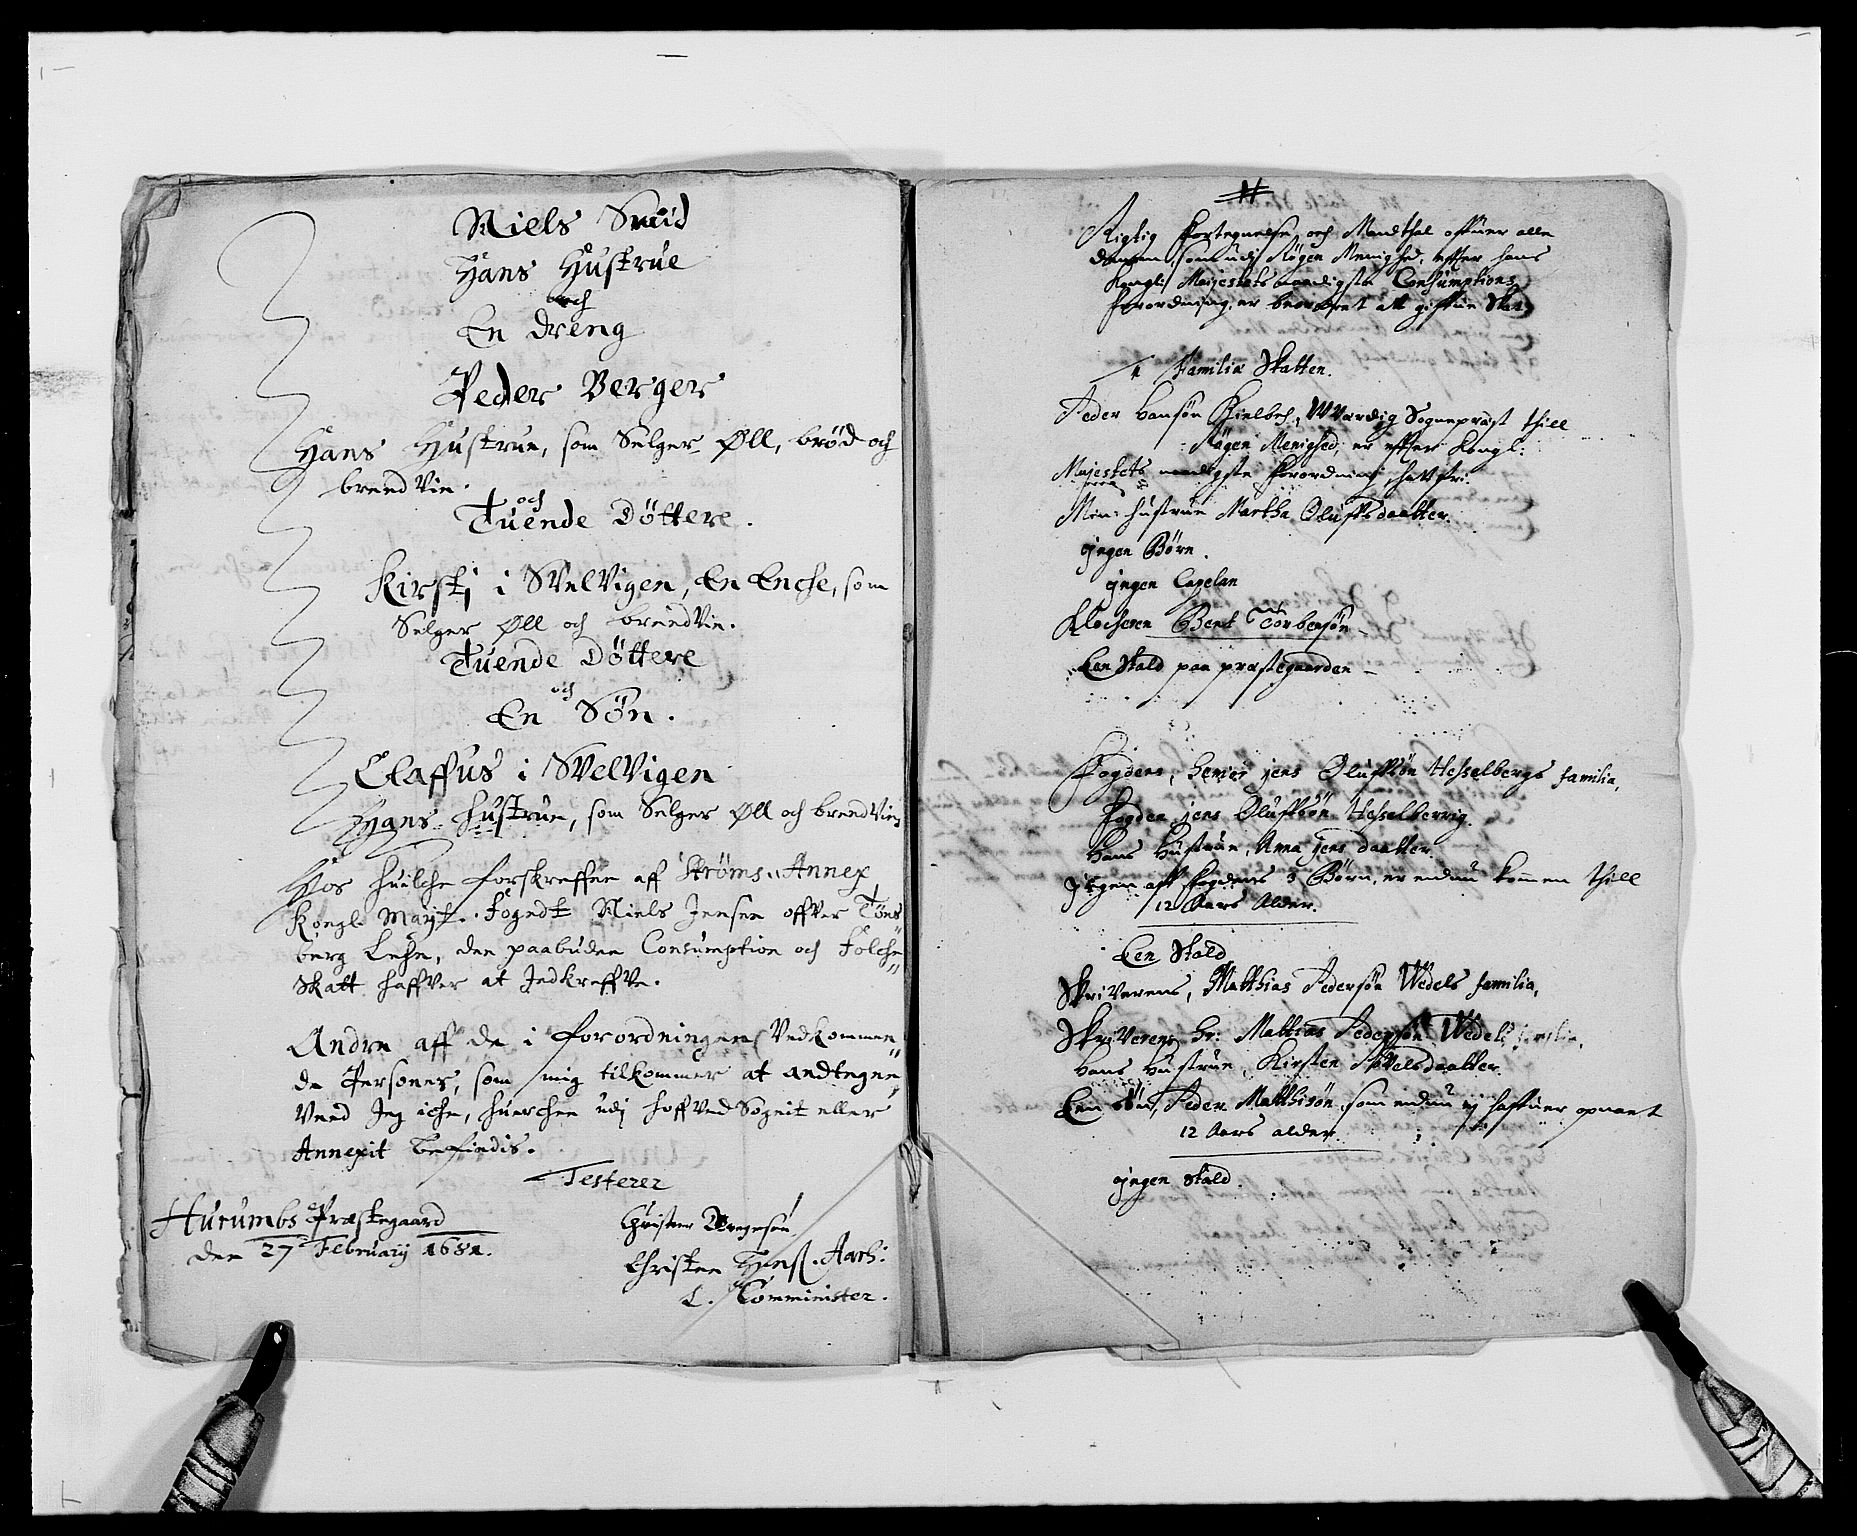 Niels Smid
Hans Hustrue
och
En dreng
Peder Berger
Hans Hustrue, som Selger Øll, brød och
brendVin.
och
Tuende Døttere.
Kirstj i SVelVigen, En Enche, som
Selger Øll och brendVin.
Tuende Døttere
och
En Søn.
Elaffus i SVelVigen
Hans Hustrue, som Selger Øll och brendVin
Hos huilche forskreffne aff Strøms Annex
Kongl. Mayt. Fogedt Niels Jensen offver Tøns
berg Lehn, den paabuden Consumption och Folche
Skatt haffver at Indkreffve.
Andre aff de i forordningen Vedkommen
de Persones, som mig tilkommer at andtegne
Veed Jeg iche, huerchen udj hoffVed Sognit eller
Annexit befindis.
Testerer
Hurumbs Præstegaard
den 27 February 1681.
Christen
Christen Hansß. Aarh:
C. Comminister.
Rigtig Fortegnelse och Mandthal offuer alle
dennem, som udj Røgen Menighed, effter hans
Kongl: Maijestets naadigste Consumptions
forordning, er beordret att giffue Skat
1 Familiæ Skatten.
Peder Hansøn Kielbeh, WVærdig Sognepræst thill
Røgen Menighed, er effter Kongl:
Majestets naadigste Forordning
Min hustrue Martha Oluffsdaatter.
jngen Børn.
jngen Capelan
Klocheren Bent Torbensøn
Een Stald paa præstegaarden
Fogdens, jens Oluffsøn Hesselbergs familia,
Fogden jens Oluffsøn Hesselberrig.
Hans Hustrue, Anna jens daatter.
jngen aff Fogdens 3 Børn, er endnu kommen thill
12 Aars Alder.
Een Stald
SkriVerens, Matthias Pedersøn Wedels familia,
SkriVeren Hr: Mattias Pedersøn Wedels familia,
Hans Hustrue, Kirsten Povelsdaatter
Een søn, Peder Matthisøn, som endnu ej haffuer opnaet
12 Aars alder.
jngen Stald.